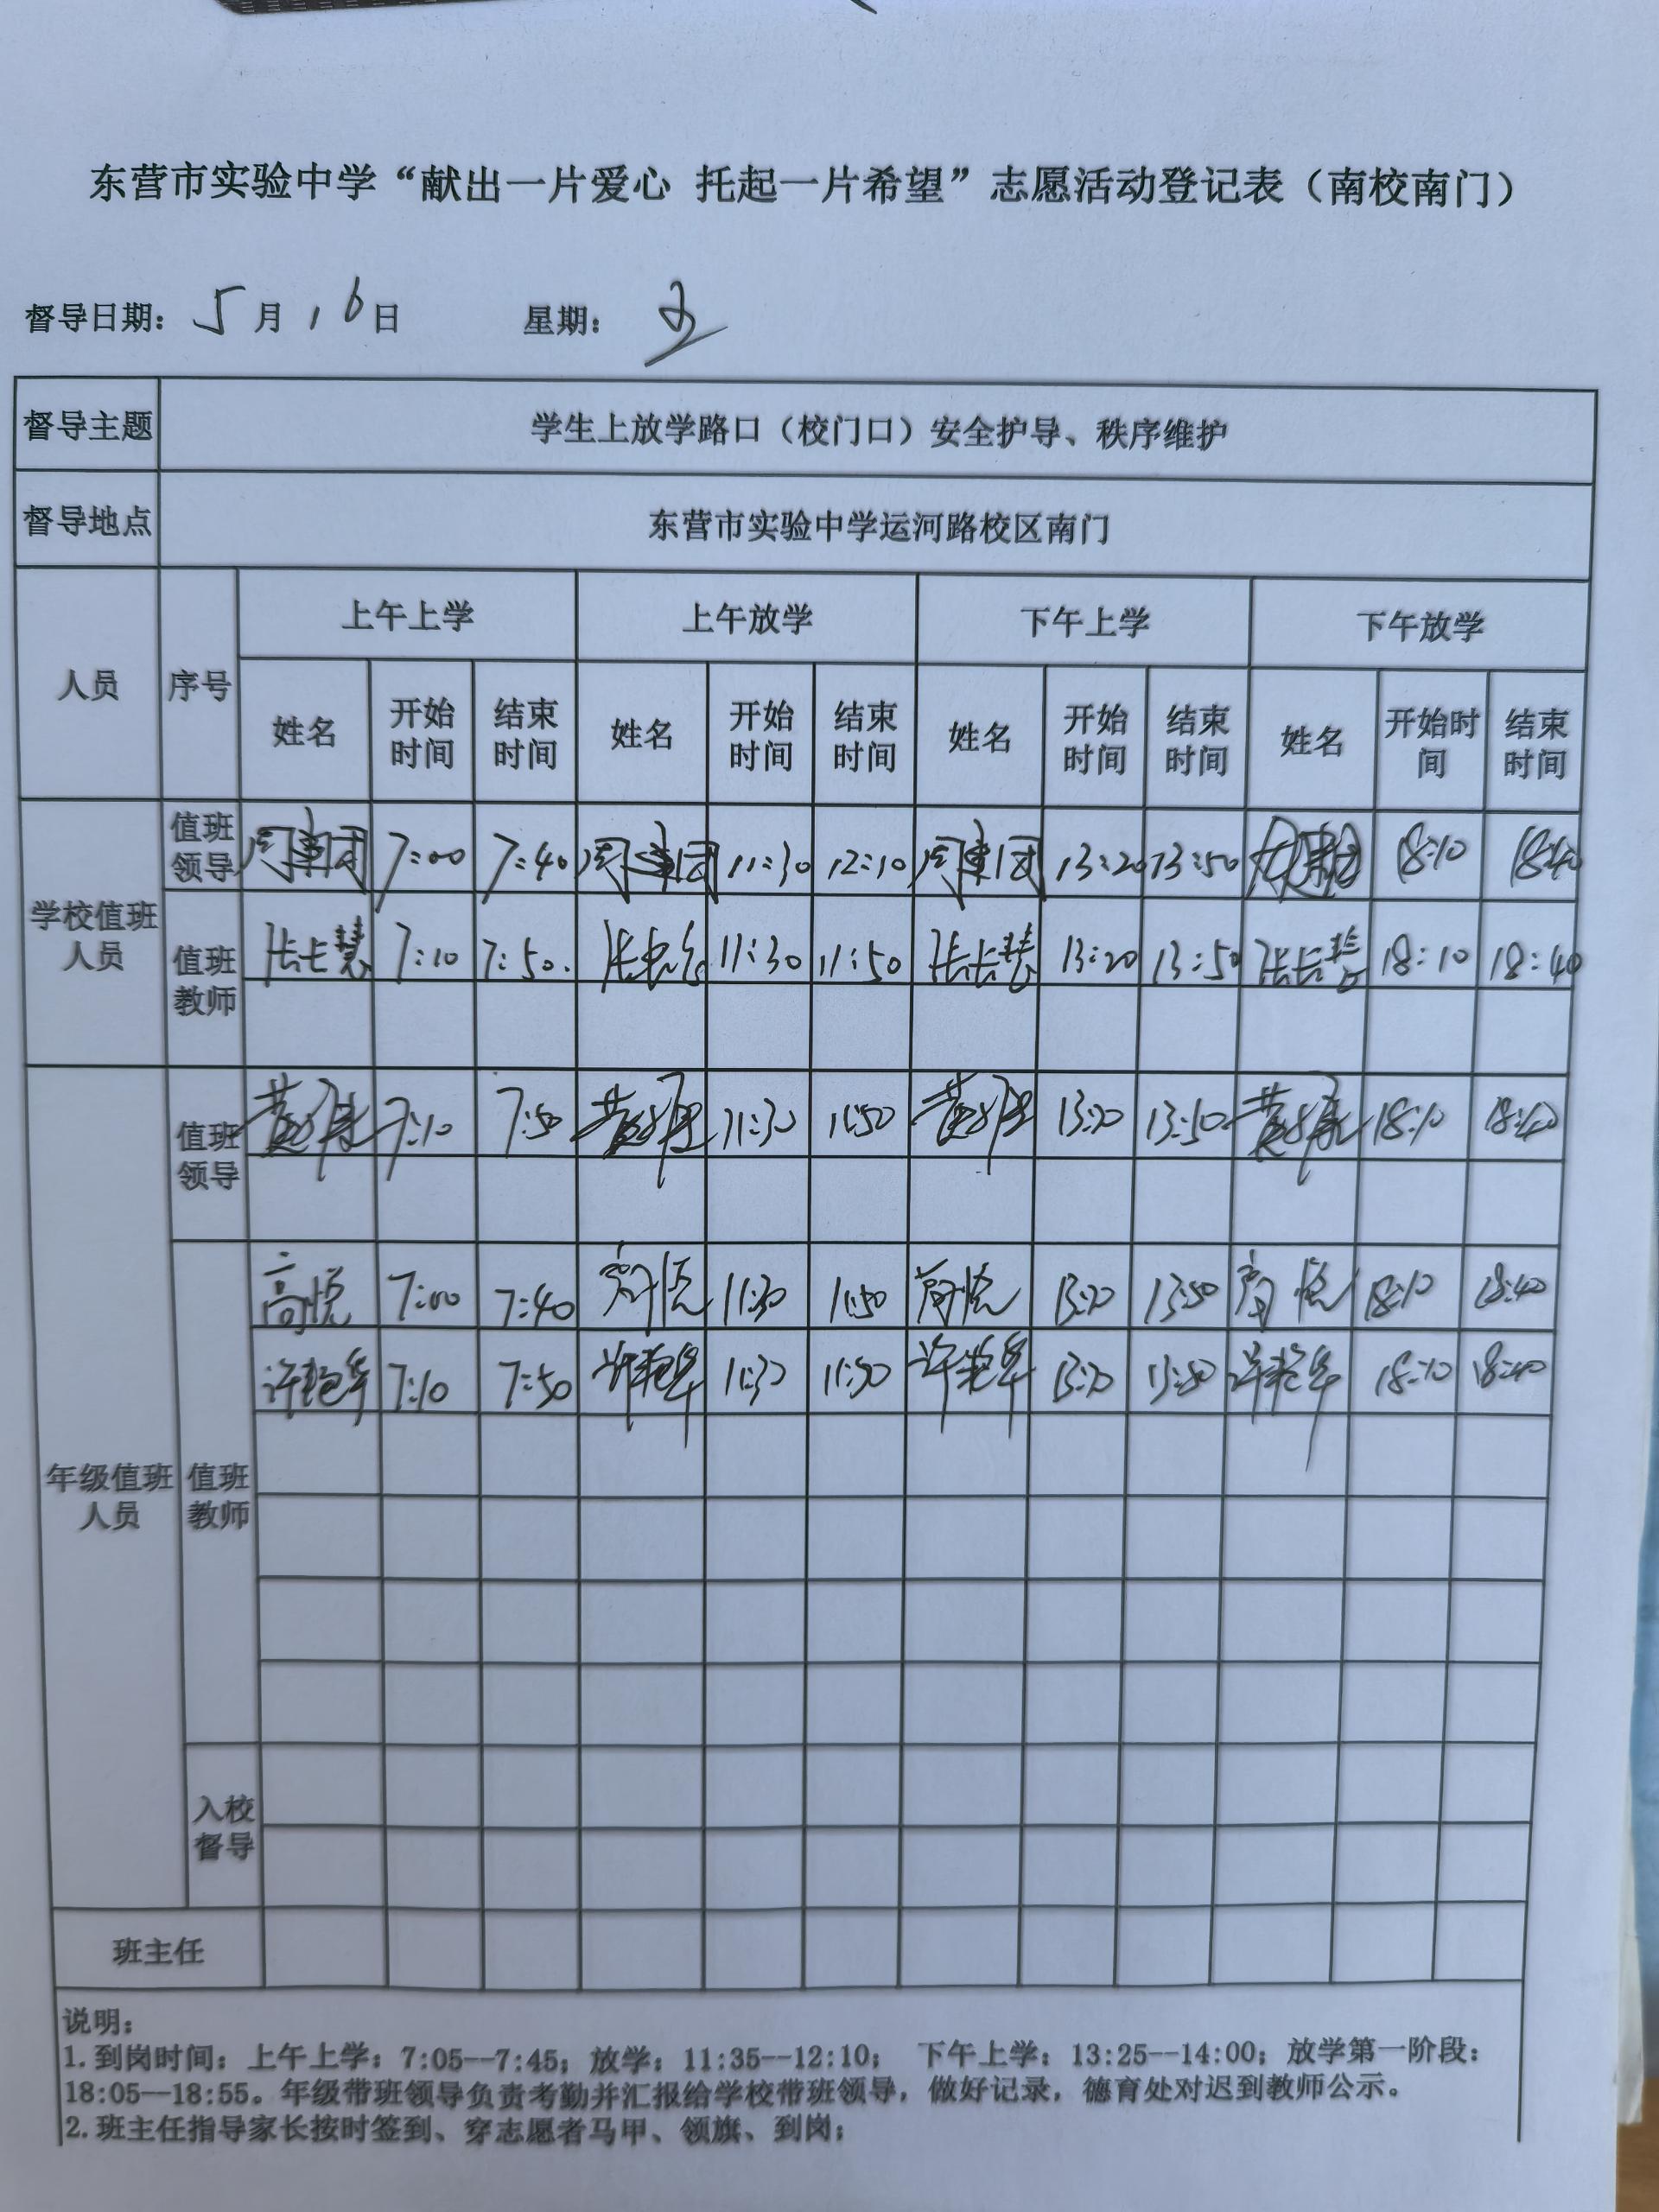 东营市实验中学“献出一片爱心 托起一片希望”志愿活动登记表（南校南门）
督导日期： 5月16日 星期： 五
督导主题 学生上放学路口（校门口）安全护导、秩序维护
督导地点 东营市实验中学运河路校区南门
人员 序号 上午上学 上午放学 下午上学 下午放学
姓名 开始时间 结束时间 姓名 开始时间 结束时间 姓名 开始时间 结束时间 姓名 开始时间 结束时间
学校值班人员
值班领导 7:00 7:40 11:30 12:10 13:20 13:50 18:10 18:40
值班教师 张长慧 7:10 7:50. 11:30 11:50 张长慧 13:20 13:50 张长慧 18:10 18:40
年级值班人员
值班领导 7:10 7:50 11:30 11:50 13:20 13:50 18:10 18:40
值班教师
高悦 7:00 7:40 高悦 11:30 11:50 高悦 13:20 13:50 高悦 18:10 18:40
许艳华 7:10 7:50 许艳华 11:30 11:50 许艳华 13:20 13:50 许艳华 18:10 18:40
入校督导
班主任
说明：
1.到岗时间：上午上学：7:05--7:45；放学：11:35--12:10； 下午上学：13:25--14:00；放学第一阶段：
18:05--18:55。年级带班领导负责考勤并汇报给学校带班领导，做好记录，德育处对迟到教师公示。
2.班主任指导家长按时签到、穿志愿者马甲、领旗、到岗；